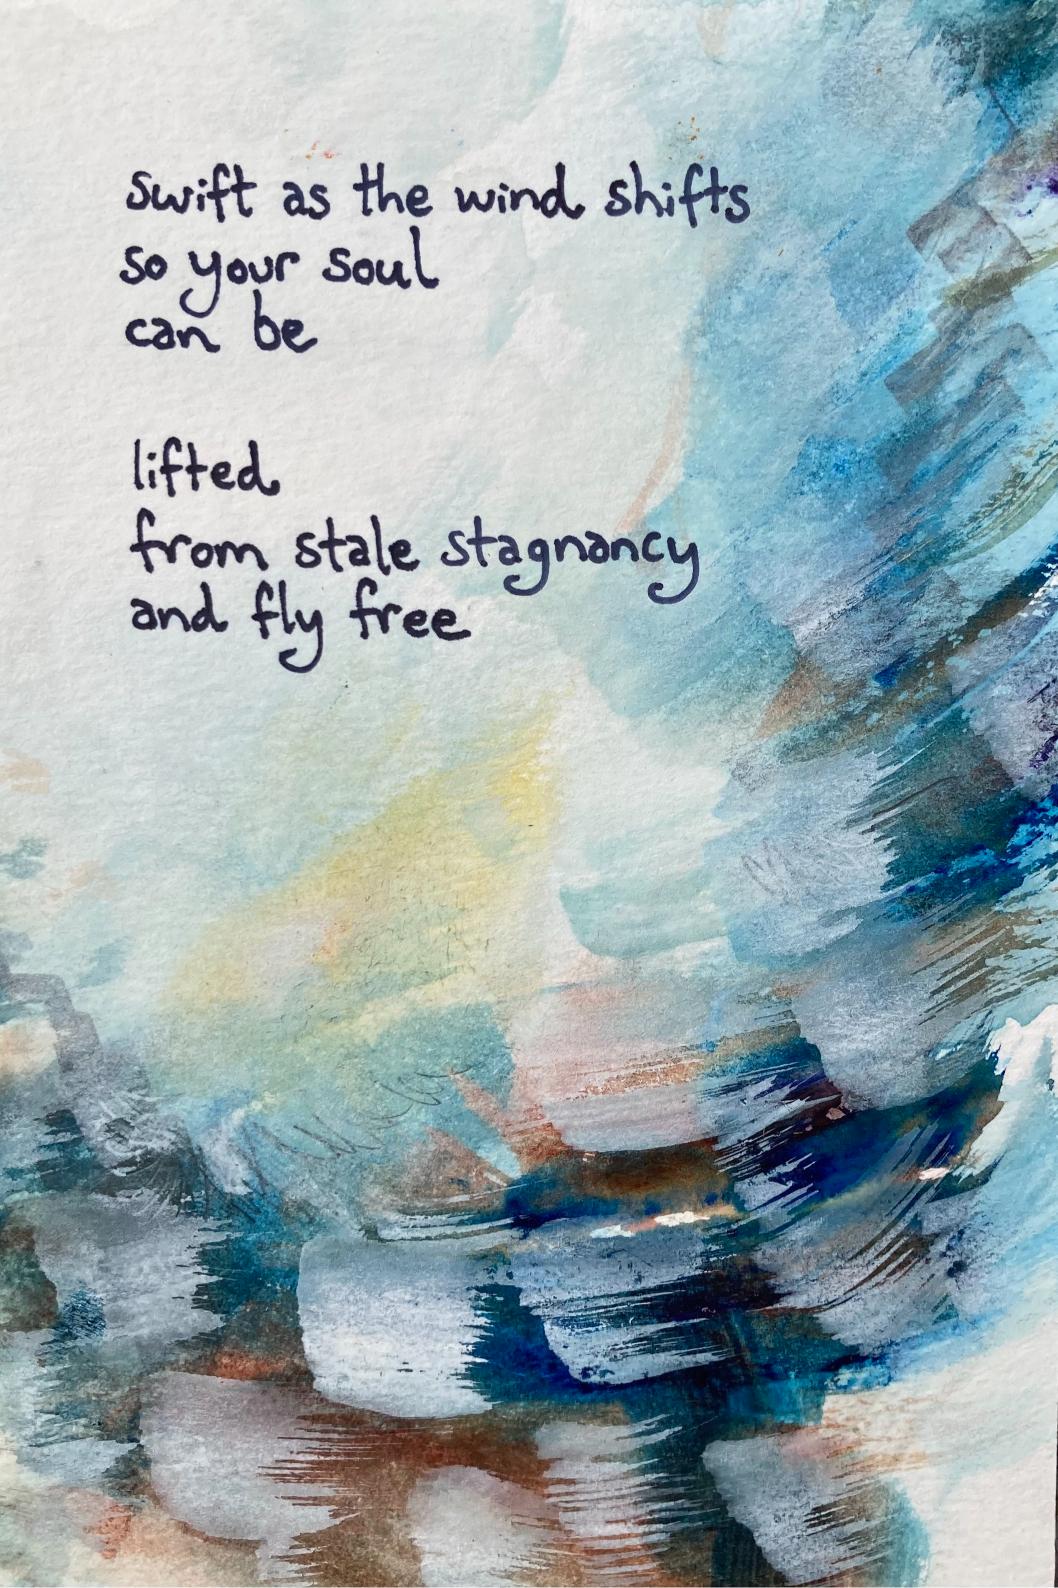 swift as the wind shifts
so your soul
can be
lifted
from stale stagnancy
and fly free